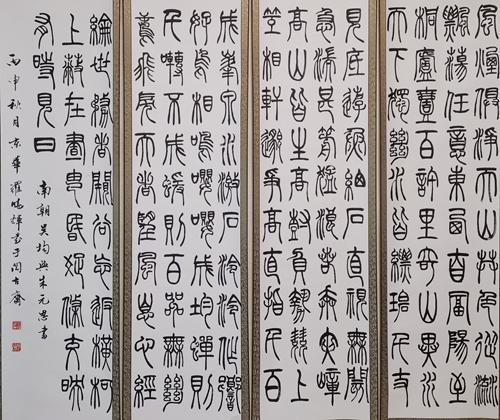 風煙俱淨天山共色從流
飄蕩任意東西自富陽至
桐廬一百許里奇山異水
天下獨絕水皆縹碧千丈
見底游魚細石直視無礙
急湍甚箭猛浪若奔夾嶂
高山皆生寒樹負勢競上
互相軒邈爭高直指千百
成峯泉水激石泠泠作響
好鳥相鳴嚶嚶成韻蟬則
千轉不窮猨則百叫無絕
鳶飛戾天者望峯息心經
綸世務者闚谷忘返橫柯
上蔽在晝猶昏疏條交映
有時見日
南朝吳均與朱元思書
丙申秋月京華羅輝書于問古齋